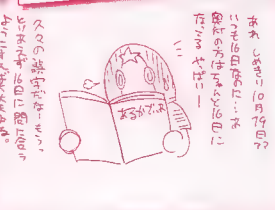 あれ しめきり10月29日??
いつも16日なのに…お
奥付の方はちゃんと16日に
なってる やっばい!
あるかでぃよ
久々の誤字だなーもうっ
とりあえず16日に間に合う
ようにすれば大丈夫かな。